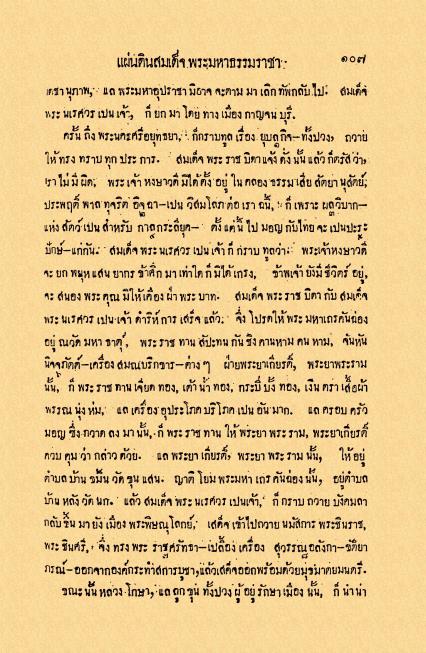 แผ่นดินสมเด็จ พระมหาธรรมราชา ๑๐๗
เดชานุภาพ, แล พระมหาอุปราชา มิอาจ จะตาม มา เลิก ทัพกลับ ไป. สมเด็จ
พระ นเรศวร เปน เจ้า, ก็ ยก มา โดย ทาง เมือง กาญจน บุรี.
ครั้น ถึง พระนครศรีอยุทธยา, ก็กราบทูล เรื่อง ยุบลกิจ—ทั้งปวง, ถวาย
ให้ ทรง ทราบ ทุก ประ การ. สมเด็จ พระ ราช บิดา แจ้ง ดั่ง นั้น แล้ว ก็ตรัส ว่า,
เรา ไม่ มี ผิด; พระ เจ้า หงษาวดี มิได้ ตั้ง อยู่ ใน คลอง ธรรม เสีย สัตยา นุสัตย์;
ประพฤติ พาล ทุจริต อิจฉา—เปน วิสมโลภ ต่อ เรา ฉนี้, ก็ เพราะ ผลวิบาก—
แห่ง สัตว์ เปน สำหรับ กาลกระลียุค— ตั้ง แต่ นี้ ไป มอญ กับไทย จะ เปน ประ
ปักษ์—แก่กัน. สมเด็จ พระ นเรศวร เปน เจ้า ก็ กราบ ทูลว่า: พระเจ้าหงษาวดี
จะ ยก พหูห แสน ยากร ข้าศึก มา เท่าใด ก็ มิได้ เกรง, ข้าพเจ้า ยังมี ชีวิตร์ อยู่,
จะ สนอง พระ คุณ มิให้ เคือง ฝ่า พระ บาท. สมเด็จ พระ ราช บิดา กับ สมเด็จ
พระ นเรศวร เปน เจ้า ดำริห์ การ เสร็จ แล้ว. จึ่ง โปรดให้ พระ มหาเถรคันฉ่อง
อยู่ ณวัด มหา ธาตุ์, พระ ราช ทาน สัปทน กัน ชิง คานหาม คน หาม, จันหัน
นิจจภัตต์—เครื่อง สมณบริกขาร—ต่าง ๆ ฝ่าย พระยาเกียรติ์, พระยาพระราม
นั้น, ก็ พระ ราช ทาน เจียด ทอง, เต้า น้ำ ทอง, กระบี่ บั้ง ทอง, เงิน ตรา เสื้อผ้า
พรรณ นุ่ง ห่ม, แล เครื่อง อุประโภค บริโภค เปน อัน มาก. แล ครอบ ครัว
มอญ ซึ่ง กวาด ลง มา นั้น, ก็ พระ ราช ทาน ให้ พระยา พระ ราม, พระยาเกียรติ์
ควบ คุม ว่า กล่าว ด้วย. แล พระยา เกียรติ์, พระยา พระ ราม นั้น, ให้ อยู่
ตำบล บ้าน ขมิ้น วัด ขุน แสน. ญาติ โยม พระมหา เถร คันฉ่อง นั้น, อยู่ตำบล
บ้าน หลัง วัด นก. แล้ว สมเด็จ พระ นเรศวร เปนเจ้า, ก็ กราบ ถวาย บังคมลา
กลับ ขึ้น มา ยัง เมือง พระพิษณุ โลกย์, เสด็จ เข้าไปถวาย นมัสการ พระชินราช,
พระ ชินศรี, จึ่ง ทรง พระ ราชศรัทธา—เปลื้อง เครื่อง สุวรรณอลังกา—ขัติยา
ภรณ์—ออกจากองค์กระทำสักการบูชา, แล้วเสด็จออกพร้อมด้วยมุขมาตยมนตรี.
ขณะ นั้น หลวง โกษา, แล ลูก ขุน ทั้งปวง ผู้ อยู่ รักษา เมือง นั้น, ก็ นำ น่า